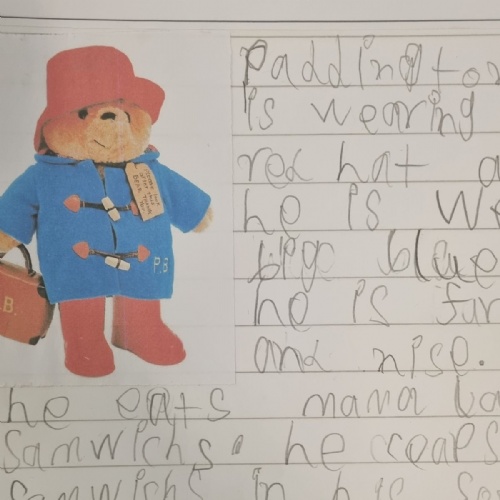 Paddington
is wearing
red hat a
he is we
bige blue
he is fur
and nise.
he eats mama la
samwichs. he ceaps
samwichs in his sa
P.B
.B.